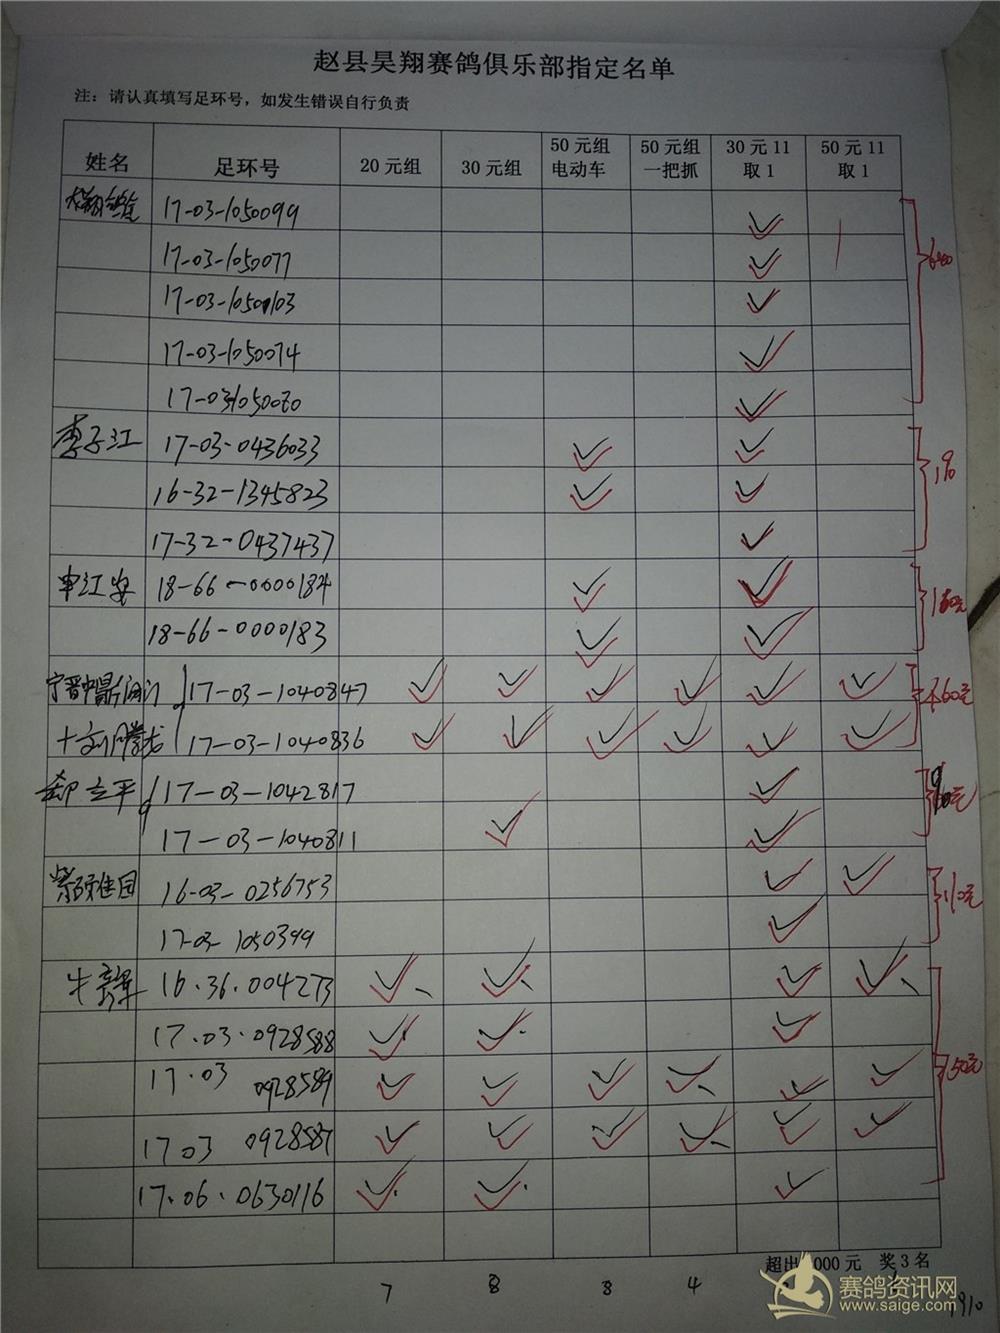 赵县昊翔赛鸽俱乐部指定名单
注：请认真填写足环号，如发生错误自行负责
姓名 足环号 20 元组 30 元组 50 元组 电动车 50 元组 一把抓 30 元 11 取 1 50 元 11 取 1
17-03-1050099 ✓
17-03-1050077 ✓
17-03-1050103 ✓
17-03-1050074 ✓
17-031050070 ✓
李子江 17-03-0436033 ✓ ✓
16-32-1345823 ✓ ✓
17-32-0437437 ✓
190
申江安 18-66-0000184 ✓ ✓
18-66-0000183 ✓ ✓
160元
17-03-1040847 ✓ ✓ ✓ ✓ ✓ ✓
17-03-1040836 ✓ ✓ ✓ ✓ ✓ ✓
460元
立平 17-03-1042817 ✓
17-03-1040811 ✓ ✓
90元
佳园 16-03-0256753 ✓ ✓
17-03-1050399 ✓
110元
牛 16.36.004273 ✓ ✓ ✓ ✓
17.03.0928588 ✓ ✓ ✓
17.03 0928589 ✓ ✓ ✓ ✓ ✓ ✓
17 03 0928587 ✓ ✓ ✓ ✓ ✓ ✓
17.06.0630116 ✓ ✓ ✓
超出 000 元 奖 3 名
7 8 8 4
赛鸽资讯网
www.saige.com